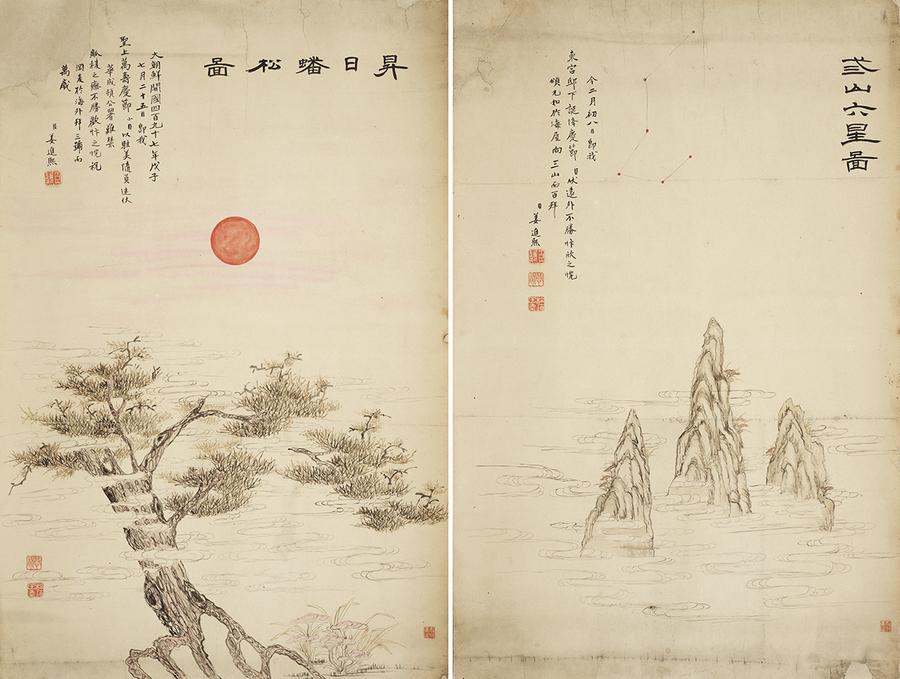 昇日蟠松圖
大朝鮮開國四百九十七年戊子
七月二十五日卽我
聖上萬壽慶節小臣以駐美隨員進伏
華盛頓公署雖禁
之 不勝歡忭之忱祝
岡 於海外拜三 而
萬歲
臣姜進熙
弎山六星圖
今二月初八日卽我
東宮邸下誕降慶節臣伏遠外不勝忭歡之忱
頌元和於海屋向三山而百拜
臣姜進熙